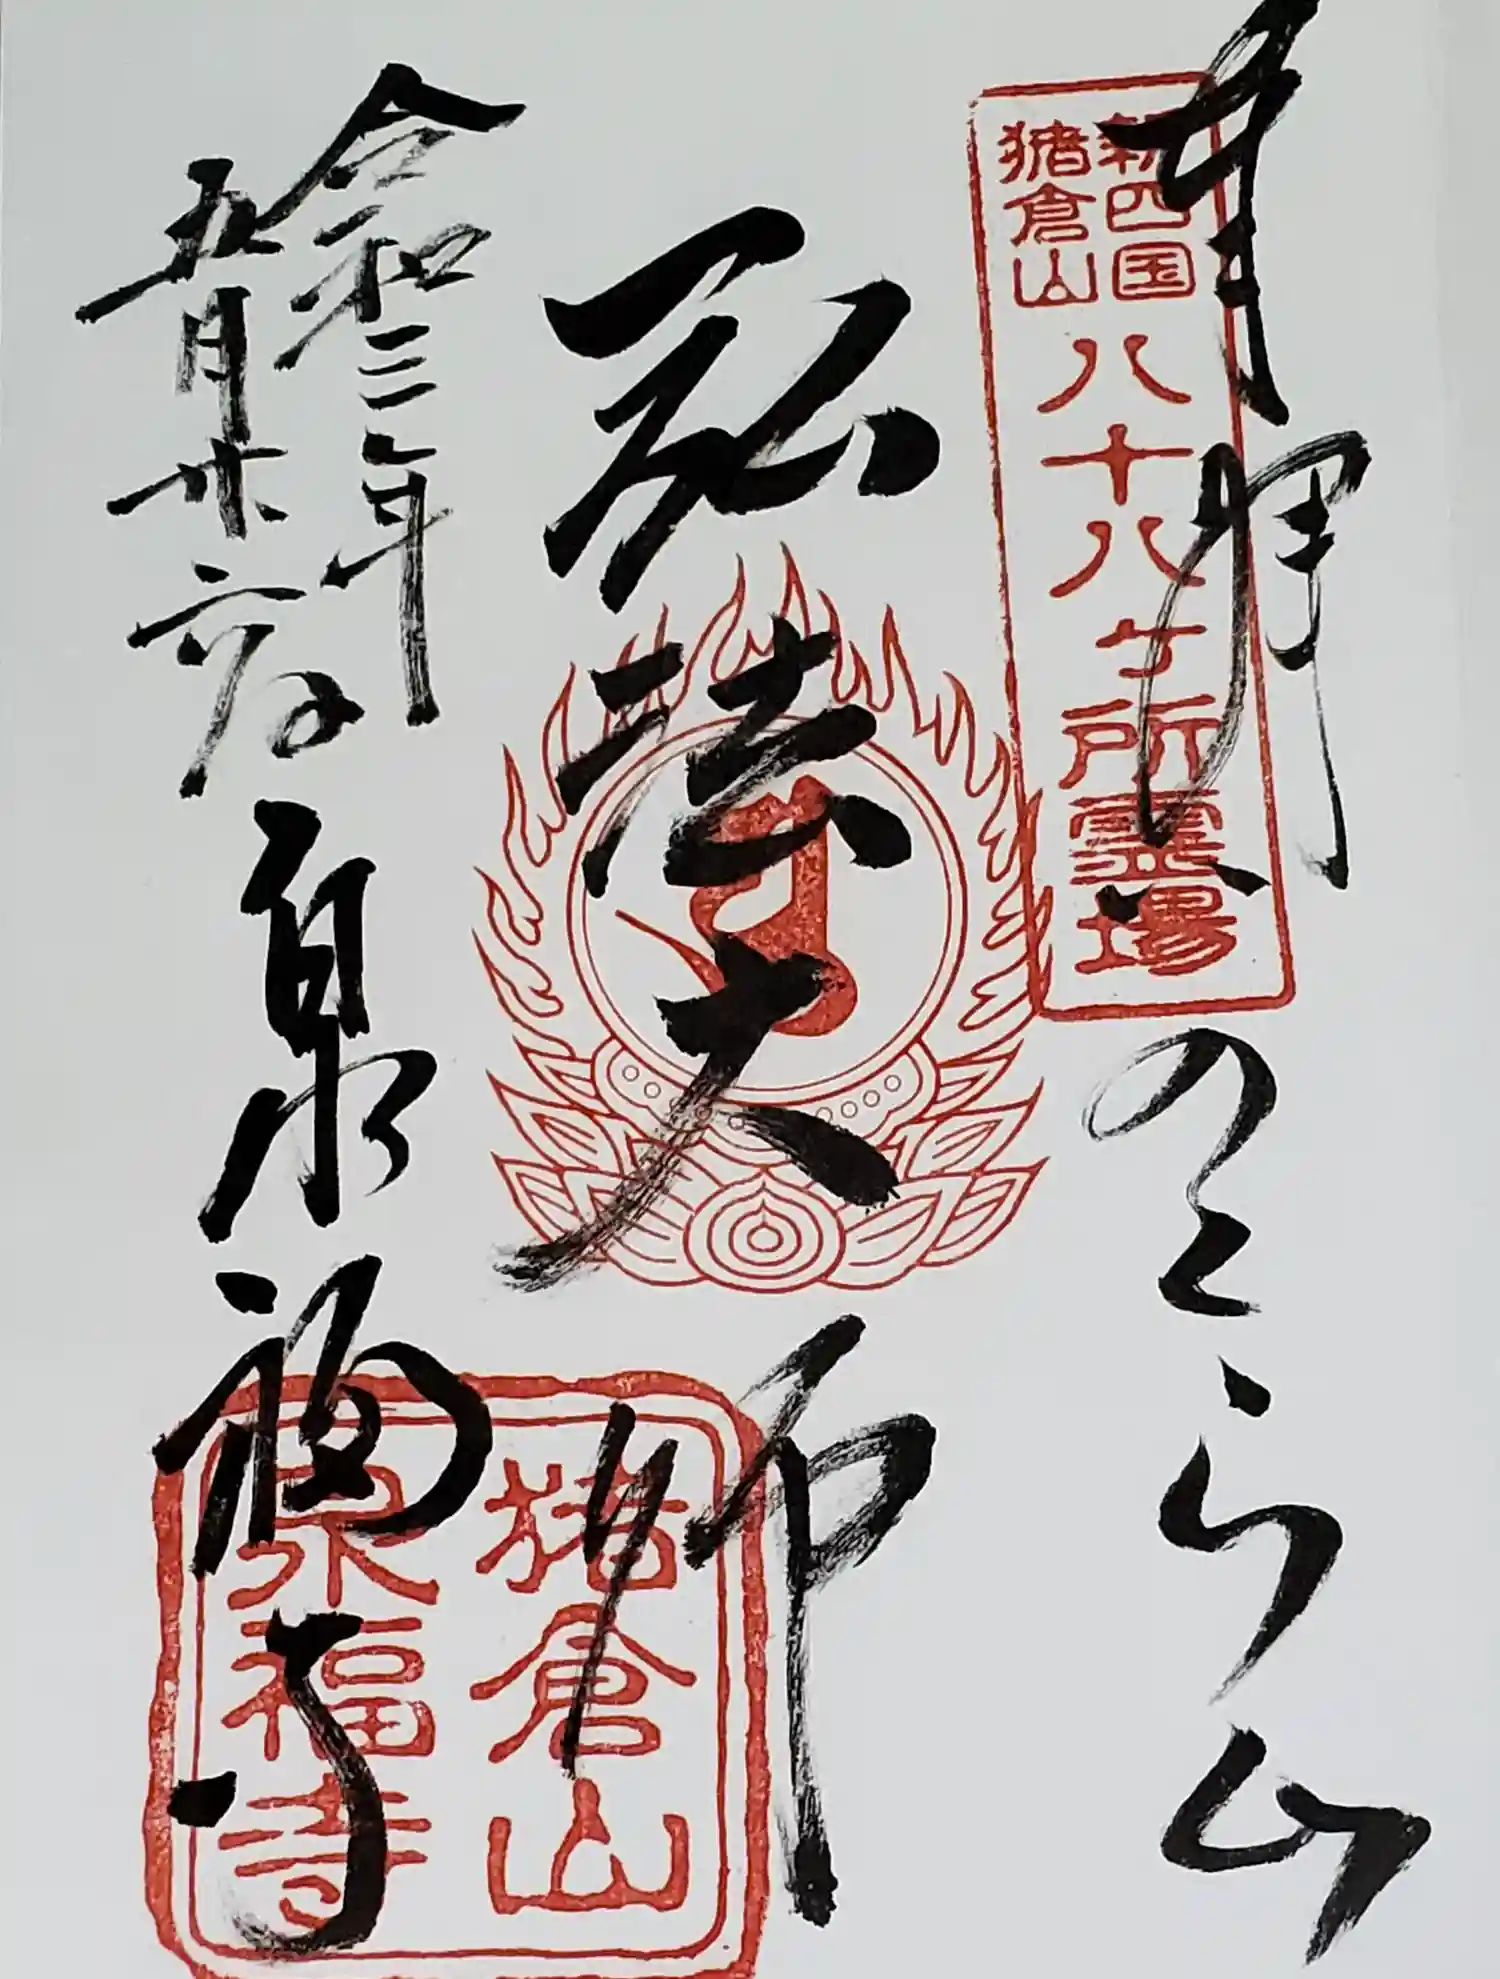 奉拝
のくら山
新四国
猪倉山
八十八ヶ所霊場
弘法大師
猪倉山
泉福寺
令和三年
五月廿六日
泉福寺